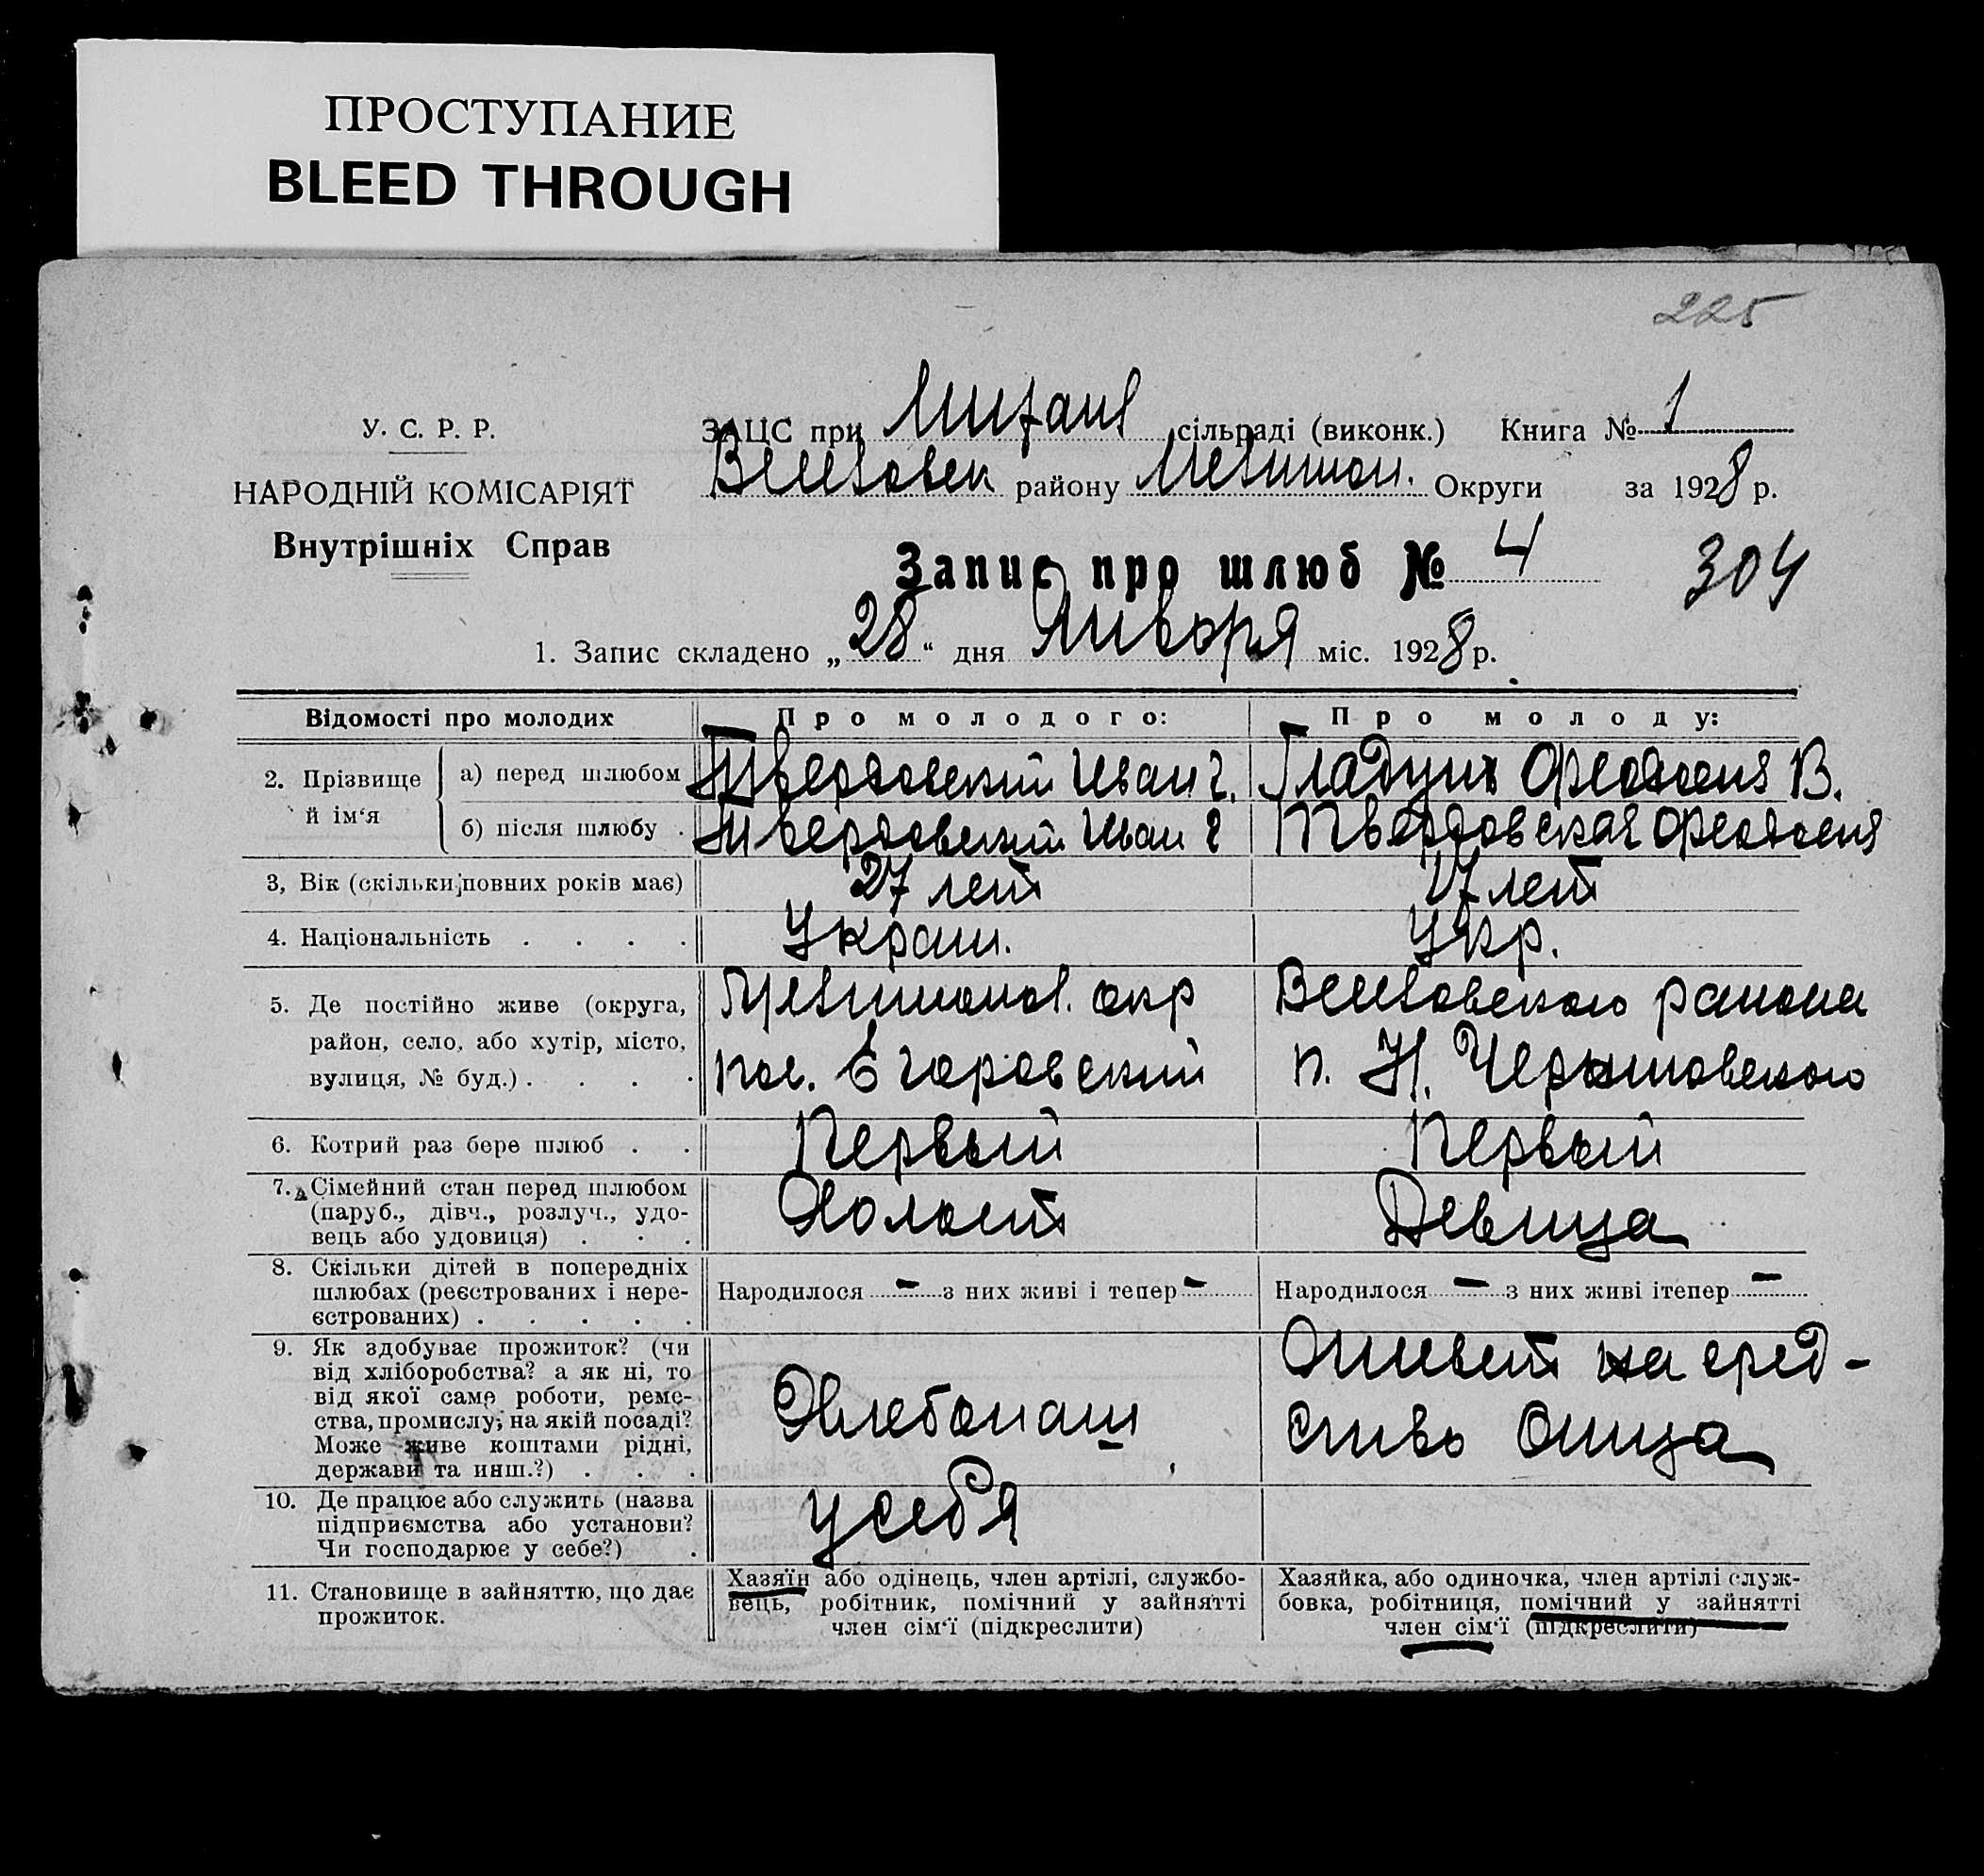 ПРОСТУПАНИЕ
BLEED THROUGH
225
У. С. Р. Р.
НАРОДНІЙ КОМІСАРІЯТ
Внутрішніх Справ
ЗАЦС при сільраді (виконк.) Книга № 1
району Округи за 1928 р.
Запис про шлюб № 4
304
1. Запис складено „28“ дня Января міс. 1928 р.
Відомості про молодих
Про молодого:
Про молоду:
2. Прізвище й ім‘я
а) перед шлюбом
Твердовский Иван Г.
Гладуних Феодосия В.
б) після шлюбу .
Твердовский Иван Г
Твердовская Феодосия
3, Вік (скільки повних років має)
27 лет
17 лет
4. Національність . . . .
Украин.
Укр.
5. Де постійно живе (округа,
район, село, або хутір, місто,
вулиця, № буд.) . . . .
окр
пос. Егоровский
района
п. Н.
6. Котрий раз бере шлюб . .
Первый
Первый
7. Сімейний стан перед шлюбом
(паруб., дівч., розлуч., удо-
вець або удовиця) . . .
Холост
Девица
8. Скільки дітей в попередніх
шлюбах (реєстрованих і нере-
єстрованих) . . . . .
Народилося – з них живі і тепер –
Народилося – з них живі ітепер –
9. Як здобуває прожиток? (чи
від хліборобства? а як ні, то
від якої саме роботи, реме-
ства, промислу, на якій посаді?
Може живе коштами рідні,
держави та инш.?) . . .
Хлебопаш
на сред-
ство Отца
10. Де працює або служить (назва
підприємства або установи?
Чи господарює у себе?) .
у себя
11. Становище в зайняттю, що дає
прожиток.
Хазяїн або одінець, член артілі, службо-
вець, робітник, помічний у зайнятті
член сім‘ї (підкреслити)
Хазяйка, або одиночка, член артілі служ-
бовка, робітниця, помічний у зайнятті
член сім‘ї (підкреслити)